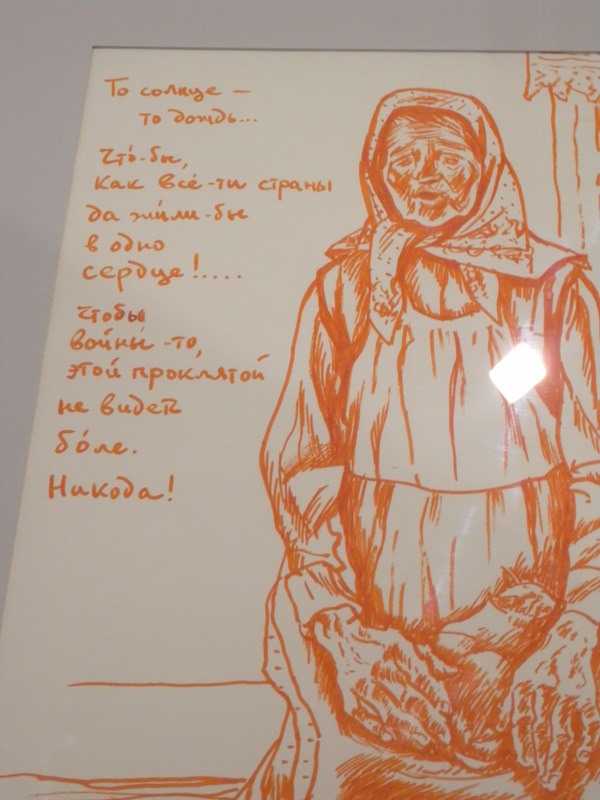 То солнце –
то дождь...
Что́-бы,
как все́-ти страны
да жи́ли-бы
в одно
сердце!....
Чтобы
войны́-то,
этой проклятой
не видеть
бо́ле.
Никода!